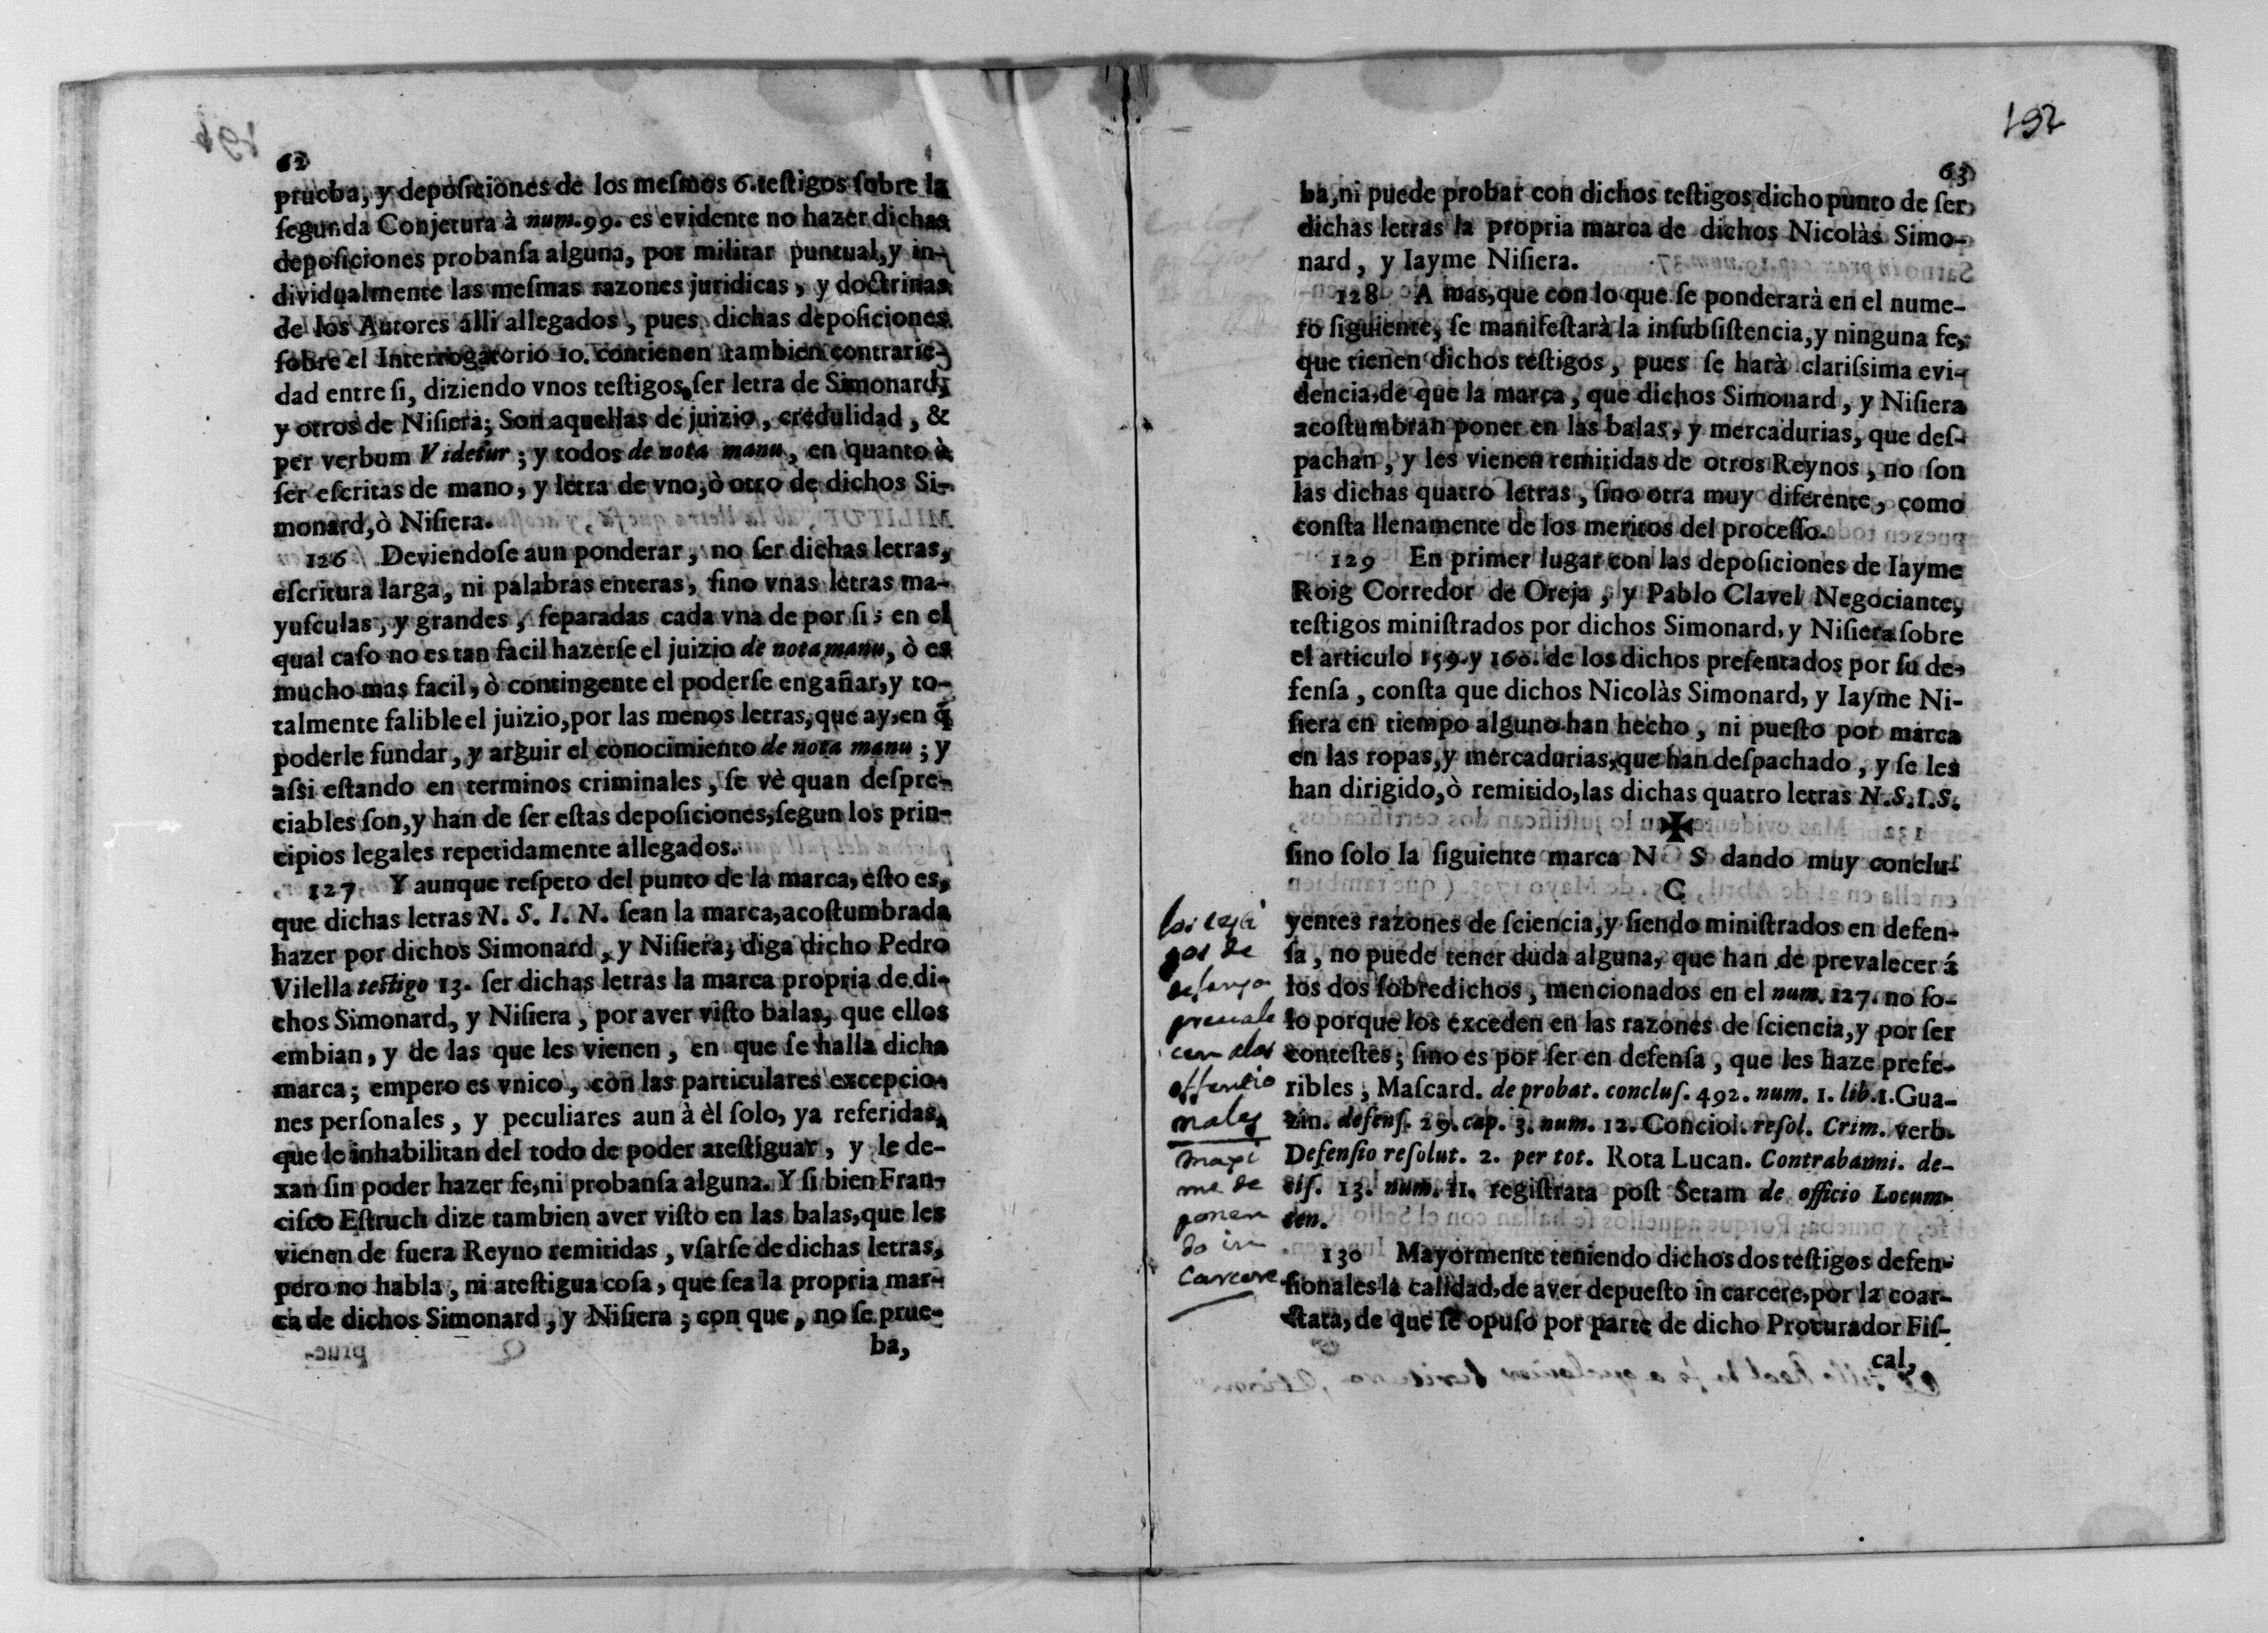 62
prueba, y deposiciones de los meſmos 6. teſtigos ſobre la
ſegunda Conjetura à num. 99. es evidente no hazer dichas
deposiciones probanſa alguna, por militar puntual, y in-
dividualmente las meſmas razones juridicas, y doctrinas
de los Autores alli allegados, pues dichas deposiciones
ſobre el Interrogatorio 10. contienen tambien contrarie-
dad entre ſi, diziendo vnos teſtigos, ſer letra de Simonard,
y otros de Niſiera; Son aquellas de juizio, credulidad, &
per verbum Videtur; y todos de nota manu, en quanto à
ſer eſcritas de mano, y letra de vno, ò otro de dichos Si-
monard, ò Niſiera.
126 Deviendoſe aun ponderar, no ſer dichas letras,
eſcritura larga, ni palabras enteras, ſino vnas letras ma-
yuſculas, y grandes, ſeparadas cada vna de por ſi; en el
qual caſo no es tan facil hazerſe el juizio de nota manu, ò es
mucho mas facil, ò contingente el poderſe engañar, y to-
talmente falible el juizio, por las menos letras, que ay, en q̃
poderle fundar, y arguir el conocimiento de nota manu; y
aſsi eſtando en terminos criminales, ſe vè quan deſpre-
ciables ſon, y han de ſer eſtas depoſiciones, ſegun los prin-
cipios legales repetidamente allegados.
127 Y aunque reſpeto del punto de la marca, eſto es,
que dichas letras N. S. I. N. ſean la marca, acoſtumbrada
hazer por dichos Simonard, y Niſiera; diga dicho Pedro
Vilella teſtigo 13. ſer dichas letras la marca propria de di-
chos Simonard, y Niſiera, por aver viſto balas, que ellos
embian, y de las que les vienen, en que ſe halla dicha
marca; empero es vnico, con las particulares excepcio-
nes perſonales, y peculiares aun à èl ſolo, ya referidas,
que le inhabilitan del todo de poder ateſtiguar, y le de-
xan ſin poder hazer fe, ni probanſa alguna. Y ſi bien Fran-
ciſco Eſtruch dize tambien aver viſto en las balas, que les
vienen de fuera Reyno remitidas, vſarſe de dichas letras,
pero no habla, ni ateſtigua coſa, que ſea la propria mar-
ca de dichos Simonard, y Niſiera; con que, no ſe prue-
ba,
192
63
ba, ni puede probar con dichos teſtigos dicho punto de ſer
dichas letras la propria marca de dichos Nicolàs Simo-
nard, y Iayme Niſiera.
128 A mas, que con lo que ſe ponderarà en el nume-
ro ſiguiente, ſe manifeſtarà la inſubſiſtencia, y ninguna fe,
que tienen dichos teſtigos, pues ſe harà clariſsima evi-
dencia, de que la marca, que dichos Simonard, y Niſiera
acoſtumbran poner en las balas, y mercadurias, que deſ-
pachan, y les vienen remitidas de otros Reynos, no ſon
las dichas quatro letras, ſino otra muy diferente, como
conſta llenamente de los meritos del proceſſo.
129 En primer lugar con las depoſiciones de Iayme
Roig Corredor de Oreja, y Pablo Clavel Negociante,
teſtigos miniſtrados por dichos Simonard, y Niſiera ſobre
el articulo 159. y 160. de los dichos preſentados por ſu de-
fenſa, conſta que dichos Nicolàs Simonard, y Iayme Ni-
ſiera en tiempo alguno han hecho, ni pueſto por marca
en las ropas, y mercadurias, que han deſpachado, y ſe les
han dirigido, ò remitido, las dichas quatro letras N.S.I.S.
✠
ſino ſolo la ſiguiente marca N S dando muy conclu-
C
yentes razones de ſciencia, y ſiendo miniſtrados en defen-
ſa, no puede tener duda alguna, que han de prevalecer á
los dos ſobredichos, mencionados en el num. 127. no ſo-
lo porque los exceden en las razones de ſciencia, y por ſer
conteſtes; ſino es por ſer en defenſa, que les haze prefe-
ribles, Maſcard. de probat. concluſ. 492. num. 1. lib. 1. Gua-
zin. defenſ. 29. cap. 3. num. 12. Conciol. reſol. Crim. verb.
Defenſio reſolut. 2. per tot. Rota Lucan. Contrabanni. de-
ciſ. 13. num. 11. regiſtrata poſt Setam de officio Locum-
ten.
130 Mayormente teniendo dichos dos teſtigos defen-
ſionales la calidad, de aver depueſto in carcere, por la coar-
ctata, de que ſe opuſo por parte de dicho Procurador Fiſ-
cal,
gos de
preuale
cen a los
offentio
nales
maxi
me de
ponen
do in
carcere